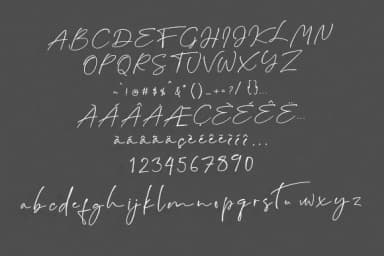 ABCDEFGHIJKLMN
OPQRSTUVWXYZ
~ ` ! @ # $ % ^ & * ( ) _ - + = ? / { } ...
ÀÁÂÃÆÇÈÉÊË...
àáâãäåçèéêëìíîï...
1234567890
abcdefghijklmnopqrstuvwxyz